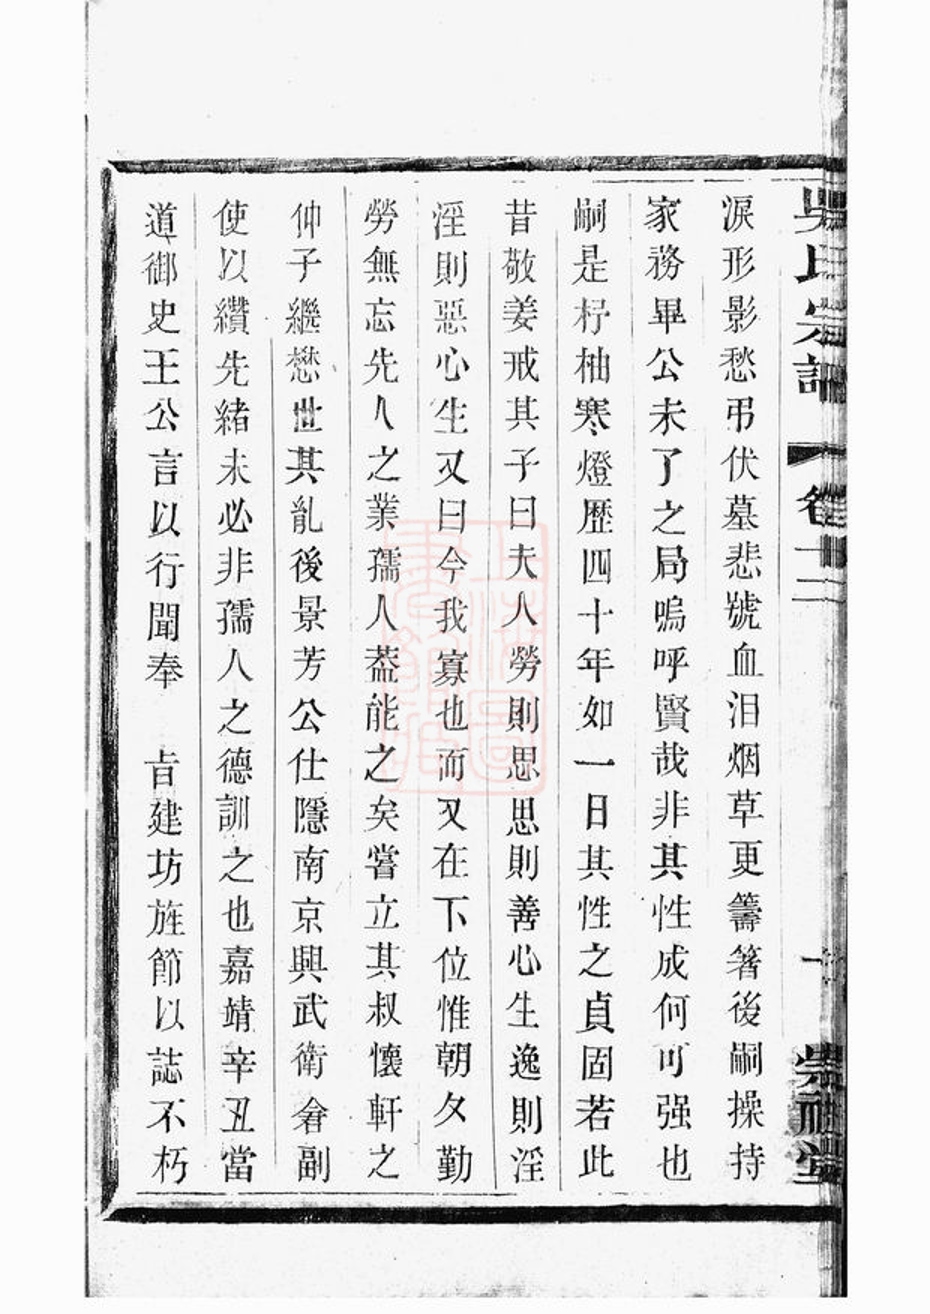 吳氏宗譜 卷十二 十 崇禮堂
淚形影愁弔伏墓悲號血泪烟草更籌箸後嗣操持
家務畢公未了之局嗚呼賢哉非其性成何可强也
嗣是杼柚寒燈歷四十年如一日其性之貞固若此
昔敬姜戒其子曰夫人勞則思思則善心生逸則淫
淫則惡心生又曰今我寡也而又在下位惟朝夕勤
勞無忘先人之業孺人葢能之矣嘗立其叔懷軒之
仲子繼懋世其亂後景芳公仕隱南京興武衛僉副
使以纘先緒未必非孺人之德訓之也嘉靖辛丑當
道御史王公言以行聞奉 旨建坊旌節以誌不朽